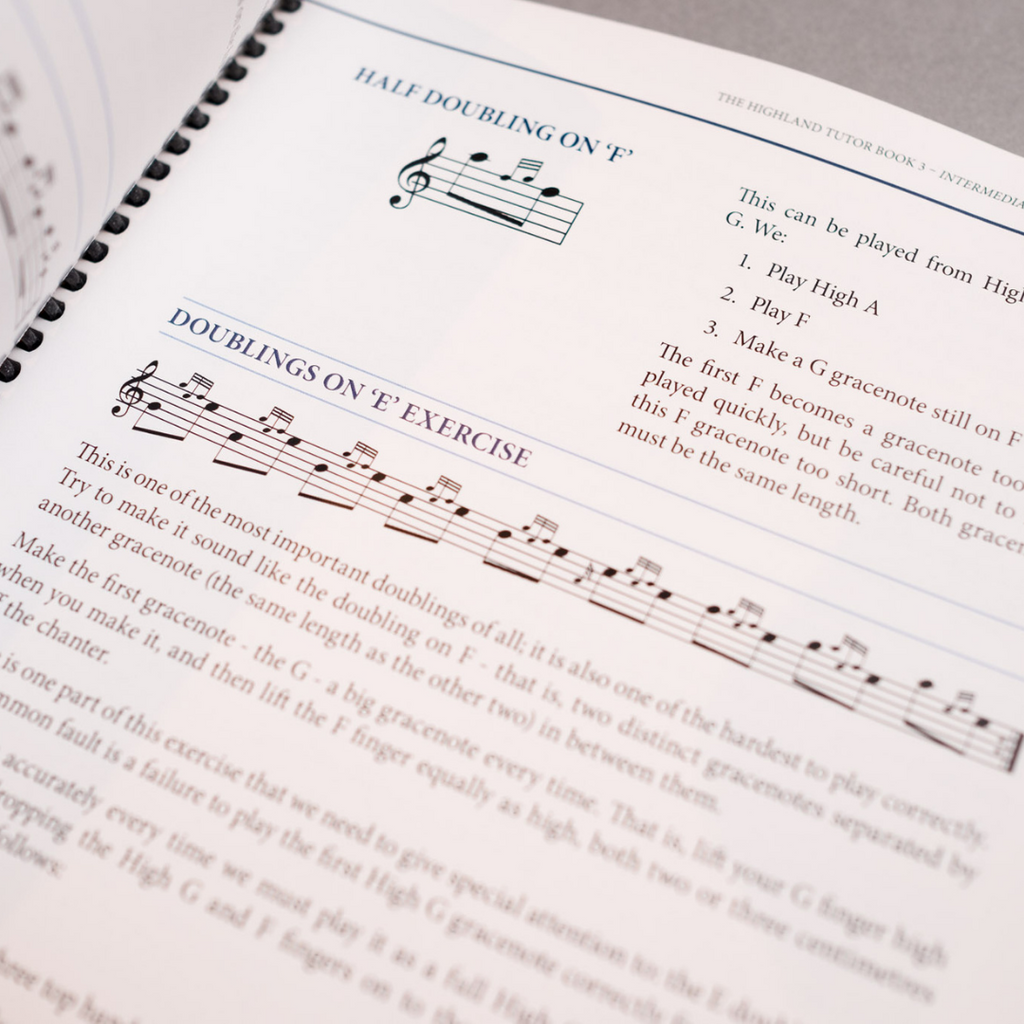 THE HIGHLAND TUTOR BOOK 3 – INTERMEDIA
HALF DOUBLING ON ‘F’
This can be played from High
G. We:
1. Play High A
2. Play F
3. Make a G gracenote still on F
The first F becomes a gracenote too
played quickly, but be careful not to
this F gracenote too short. Both gracen
must be the same length.
DOUBLINGS ON ‘E’ EXERCISE
This is one of the most important doublings of all; it is also one of the hardest to play correctly.
Try to make it sound like the doubling on F - that is, two distinct gracenotes separated by
another gracenote (the same length as the other two) in between them.
Make the first gracenote - the G - a big gracenote every time. That is, lift your G finger high
when you make it, and then lift the F finger equally as high, both two or three centimetres
the chanter.
is one part of this exercise that we need to give special attention to: the E doub
mmon fault is a failure to play the first High G gracenote correctly
accurately every time we must play it as a full High
ropping the High G and F fingers on to th
follows:
three top hand